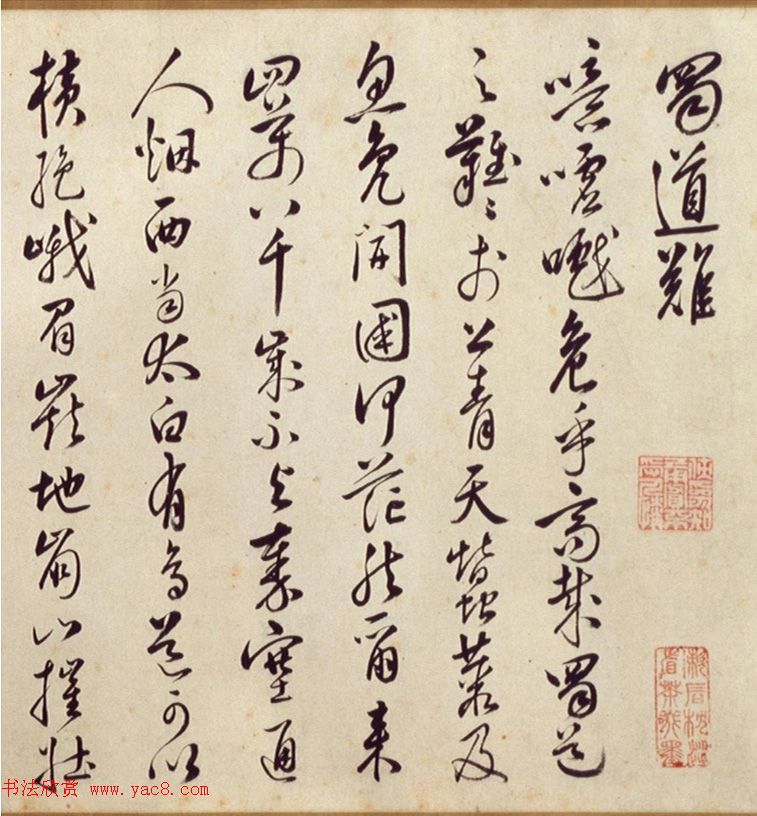 蜀道難
噫嘘嚱危乎高哉蜀道
之難〻於上青天蠶叢及
魚鳧開國何茫然爾來
四萬八千歲不与秦塞通
人烟西當太白有鳥道可以
橫絕峨眉巔地崩山摧壯
书法欣赏 www.yac8.com